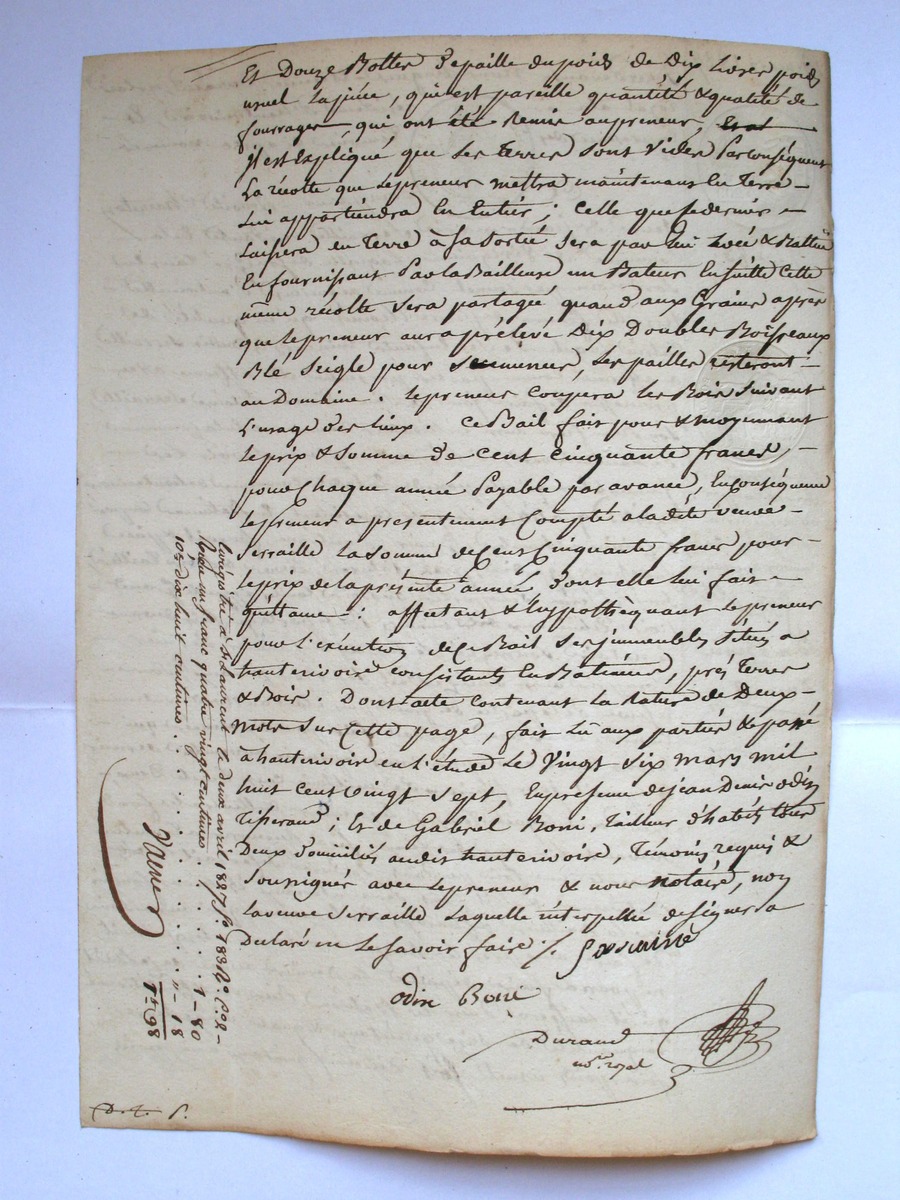 Et Douze Bottes depaille dupoids de Dix Livres poids
usuel lapiece, qui est pareille quantité & qualité de
fourrages qui ont été Remis au preneur,
jl est Expliqué que Les Terres sont Vides Par conséquent
La récolte que Lepreneur mettra maintenant En Terre
Lui appartiendra En Entier ; Celle que Ledernier
Laissera en Terre à Sa Sortie Sera par lui & Battue
En fournissant Par la Bailleuse un Bateur Ensuitte Cette
même récolte Sera partagé quand aux Grains après
que lepreneur aura prélevé Dix Doubles Boisseaux
Blé Seigle pour Semence, Les pailles resteront
au Domaine. lepreneur Coupera les Bois Suivant
L'usage des lieux. Ce Bail fait pour & moyennant
le prix & Somme de cent cinquante francs,
pour Chaque année Payable par avance, En Conséquence
lepreneur a présentement Compté a ladite veuve
Serraille la Somme de Cent Cinquante francs pour
le prix de la présente année, dont elle lui fait
quittance : affectant & hypothèquant lepreneur
pour l'exécution de Ce Bail Ses jmmeubles Situés a
hauterivoire consistants En Batiments, prés Terres
& Bois. Dont acte contenant la Rature de Deux
mots sur Cette page, fait Lu aux parties & passé
à hauterivoire en l'étude Le Vingt Six mars mil
huit Cent vingt Sept, En présence de jean Denis odin
Tisserand ; Et de Gabriel Boni, Tailleur d'habits tous
Deux domiciliés audit hauterivoire, Témoins requis &
Soussignés avec Lepreneur & nous notaire, non
la veuve Serraille Laquelle interpellée de Signer a
Declaré ne Le Savoir faire ./.
odin Boni
Durand
no.re royal
Enregistré à St Laurent le deux avril 1827 fo. 183
Reçu un franc quatre vingt centimes . . . 1 - 80
10e dix huit centimes . . . . . . . " - 18
1 - 98
D. t. P.